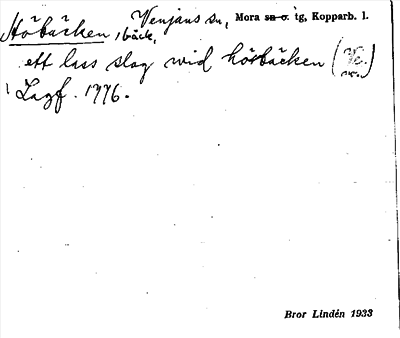 Höbäcken, bäck, Venjans sn, Mora sn o. tg, Kopparb. l.
ett lass slog wid hösbäcken (Ve. sn.)
Lagf. 1776.
Bror Lindén 1933